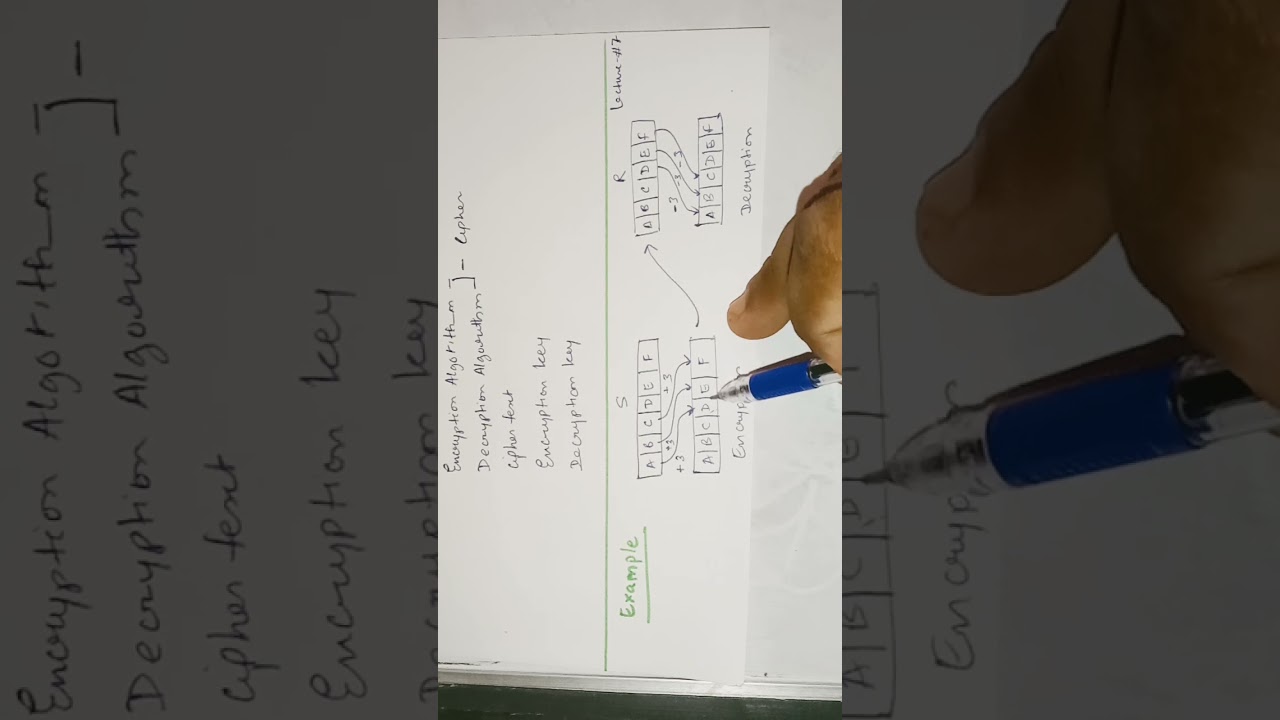 Encryption Algorithm ] - Cipher
Decryption Algorithm
Cipher text
Encryption key
Decryption key
Lecture-#7
Example
S
A B C D E F
+3 +3 +3
A B C D E F
R
A B C D E F
-3 -3 -3
A B C D E F
Decryption